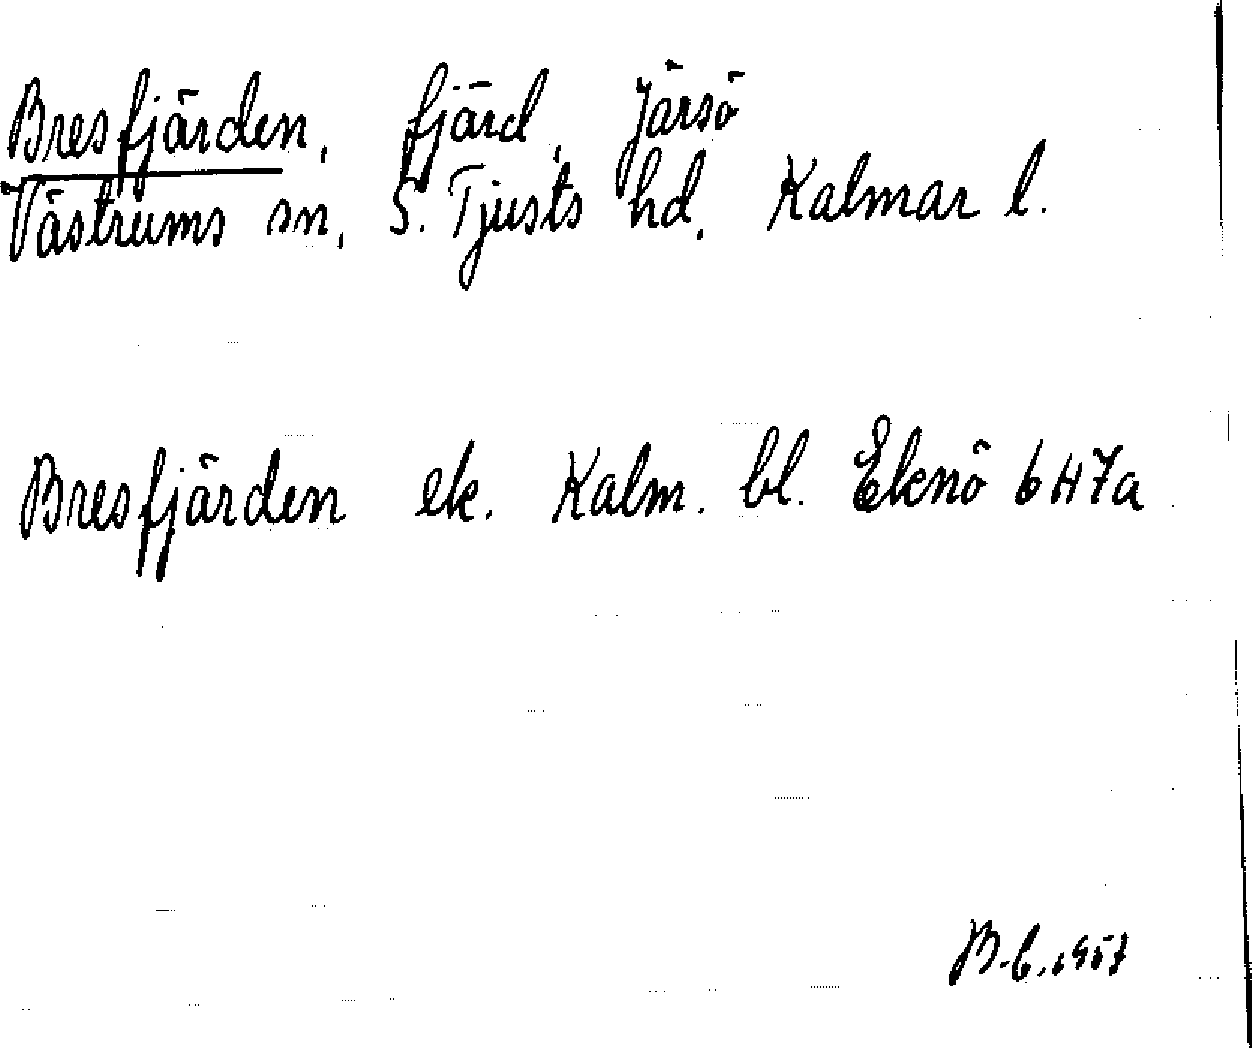 Bresfjärden, fjärd, Järsö
Västrums sn, S. Tjusts hd, Kalmar l.
Bresfjärden ek. Kalm. bl. Eknö 6H7a
B-C. 1957